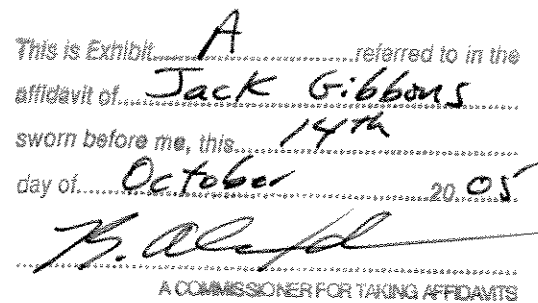 This is Exhibit A referred to in the
affidavit of Jack Gibbons
sworn before me, this 14th
day of October 20 05
A COMMISSIONER FOR TAKING AFFIDAVITS